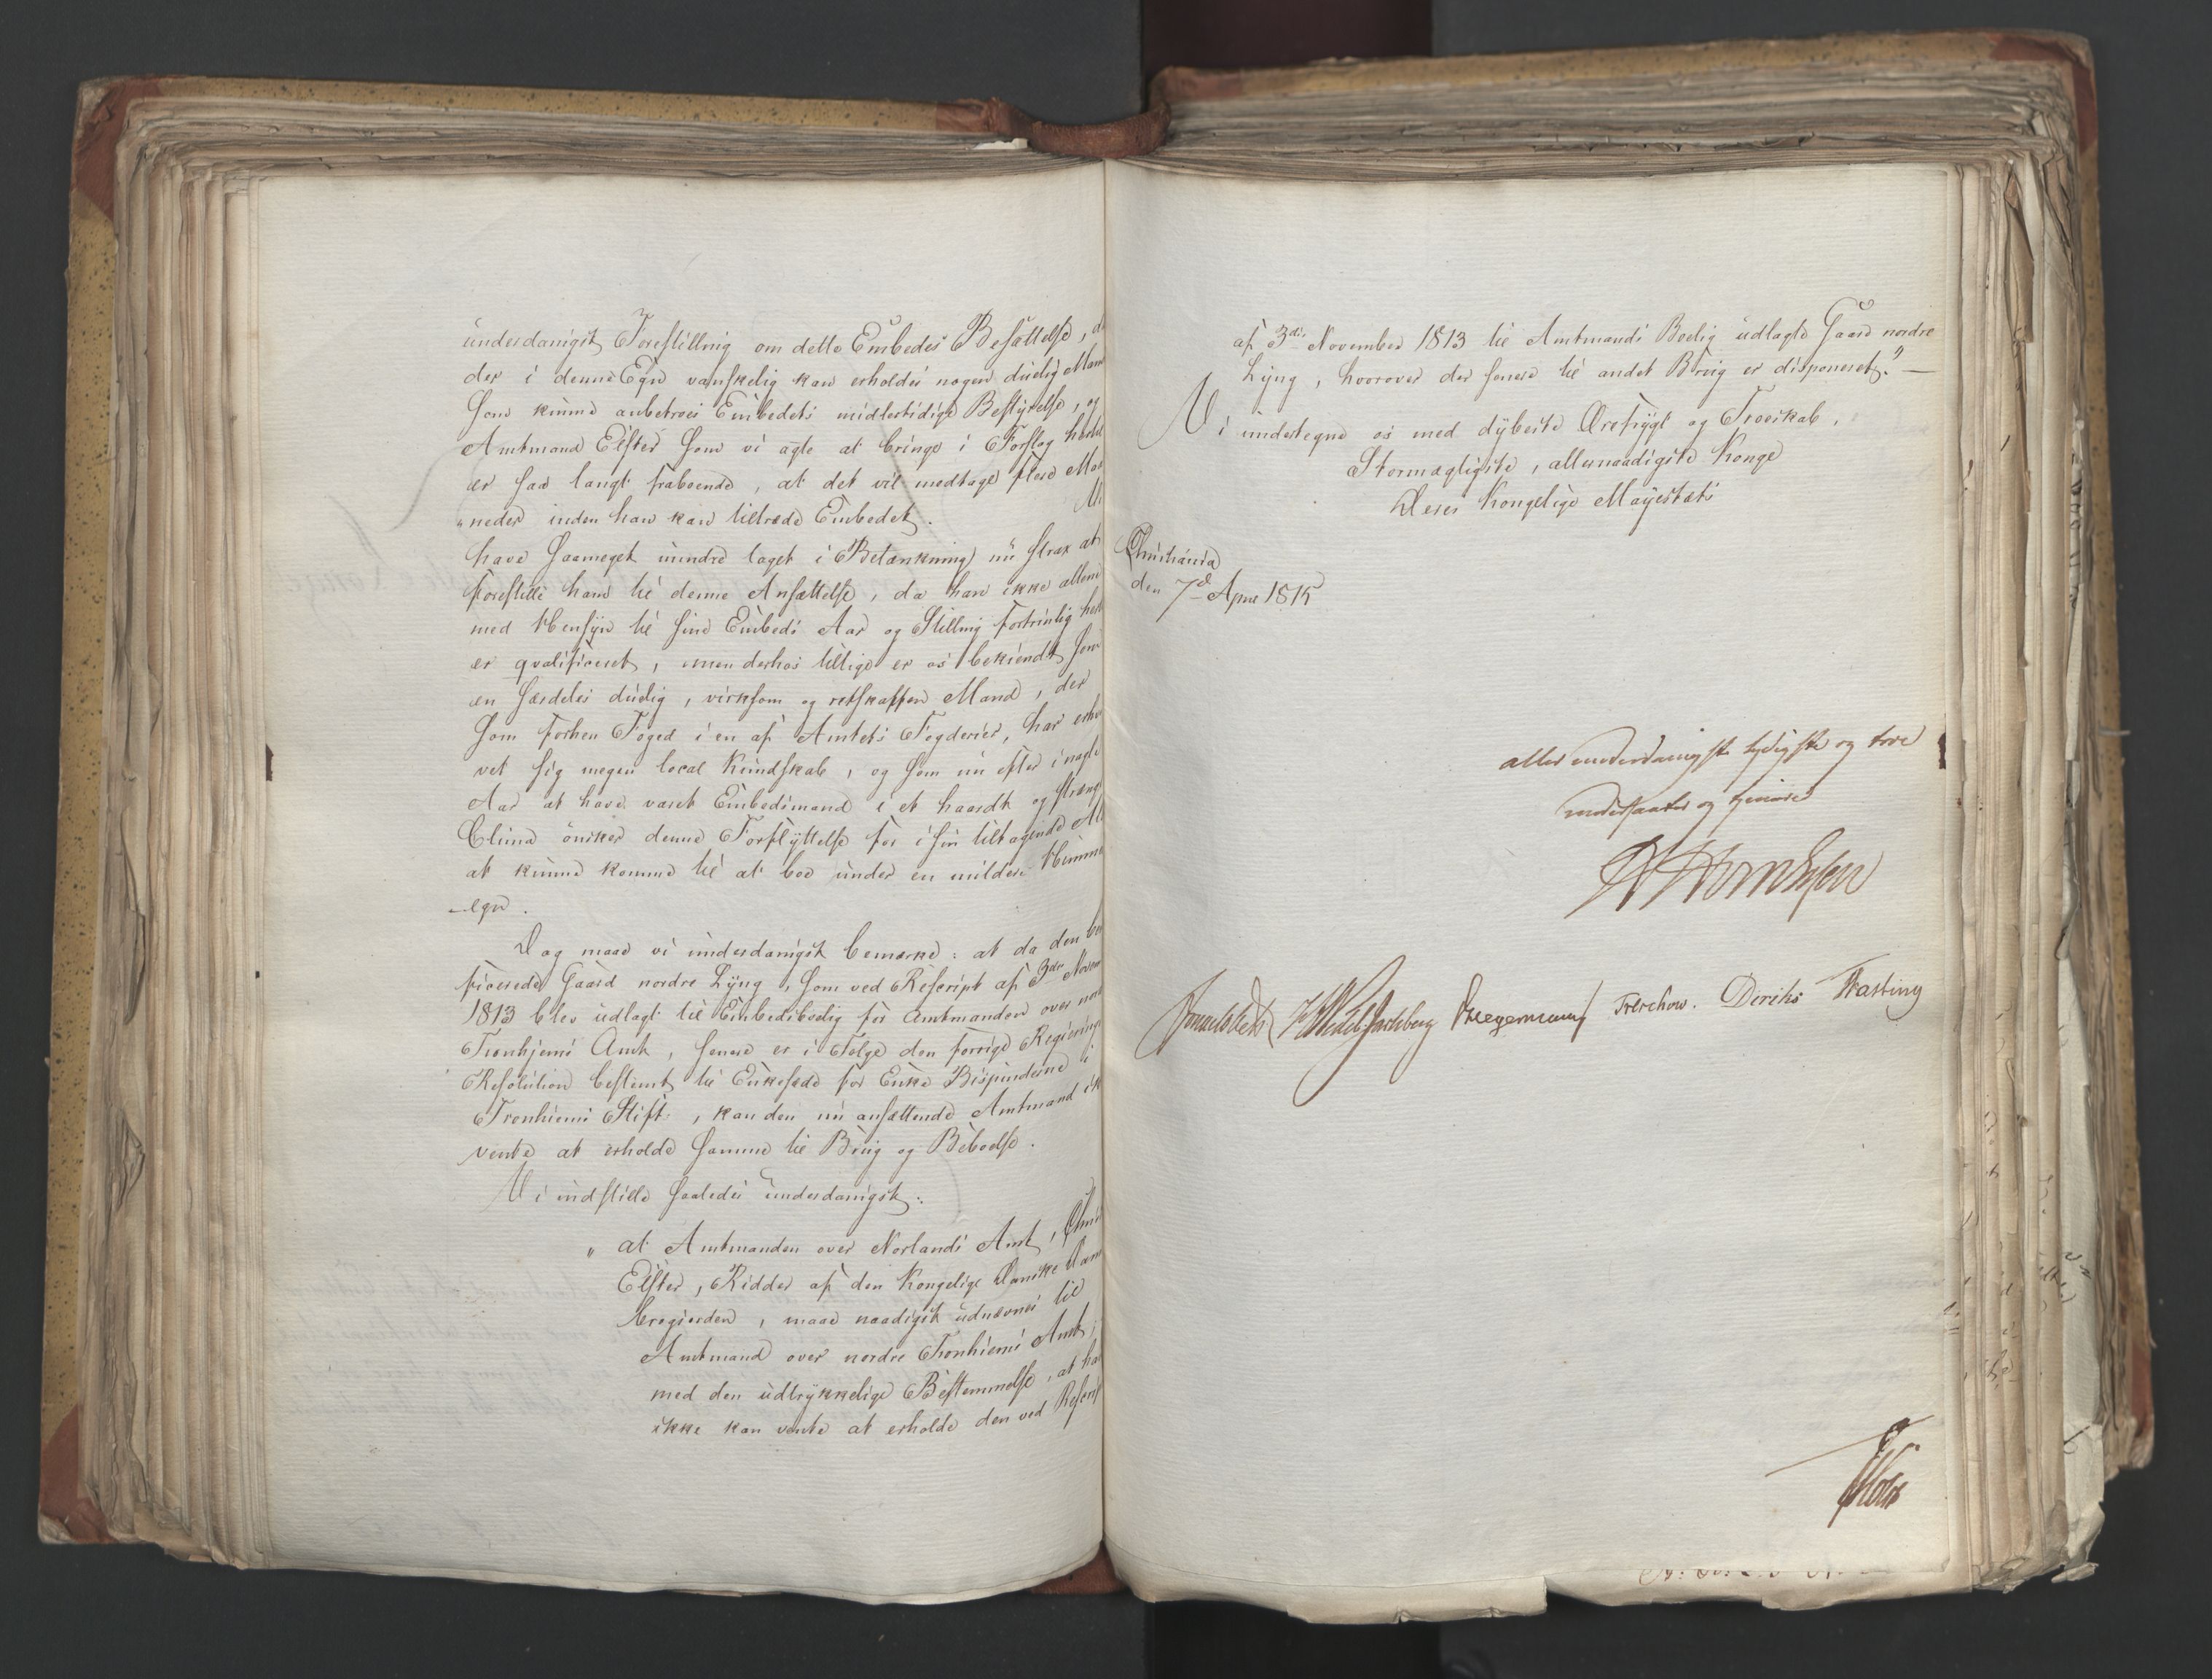 underdanigst Forestilling om dette Embedes Besættelse,
der i denne Egn vanskelig kan erholdes nogen duelig Man
som kunne anbetroes Embedets midlertidige Bestyrelse, og
Amtmand Elster som vi agte at bringe i Forslag
er saa langt fraboende, at det vil medtage flere Maa
neder inden han kan tiltræde Embedet.
have saameget mindre taget i Betænkning nu strax at
forestille ham til denne Ansættelse, da han ikke allene
med Hensyn til sine Embeds Aar og Stilling fortrinlig
er qvalificeret, men derhos tillige er os bekiendt som
en særdeles duelig, virksom og retskaffen Mand, der
som forhen Foged i en af Amtets Fogderier, har erhver
vet sig megen local Kundskab, og som nu efter
Aar at have været Embedsmand i et haardt og strængt
Clima ønsker denne Forflyttelse for i sin tiltagende Al
at kunne komme til at boe under en mildere Himme
legn.
Dog maae vi underdanigst bemærke: at da den
ficerede Gaard nordre Lyng, som ved Rescript af 3die Novem
1813 blev udlagt til Embedsbolig for Amtmanden over nor
Tronhjems Amt, senere er i Følge den forrige Regierings
Resolution bestemt til Enkesæde for Enke Bispinderne i
Tronhiems Stift, kan den nu ansættende Amtmand ik
vente at erholde samme til Brug og Beboelse.
Vi indstille saaledes underdanigst:
" at Amtmanden over Norlands Amt,
Elster, Ridder af den Kongelige Danske Dann
brogsorden, maae naadigst udnævnes til
Amtmand over nordre Tronhiems Amt,
med den udtrykkelige Bestemmelse, at ha
ikke kan vente at erholde den ved Rescript
af 3die November 1813 til Amtmands Boelig udlagte Gaard nordre
Lyng, hvorover der senere til andet Brug er disponeret." —
Vi undertegne os med dybeste Ærefrygt og Troeskab,
Stormægtigste, allernaadigste Konge
Deres Kongelige Mayestæts
Christiania
den 7de April 1815
allerunderdanigste lydigste og troe
undersaatter og tjenere
Sommerhielm Wedel Jarlsberg Hegermann Treschow. Diriks Fasting
Holst